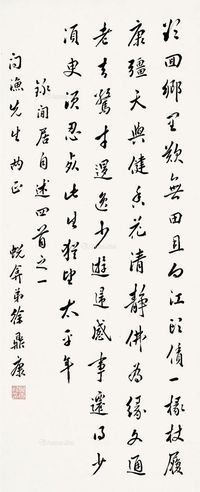 欲回鄉里歎無田且向江頭債一椽杖履
康彊天與健香花清靜佛為緣文通
老去驚才退逸少遊遲感事遷得少
須臾須忍死此生猶望太平年
錄閒居自述四首之一
問漁先生兩正
蛻弇弟徐鼎康